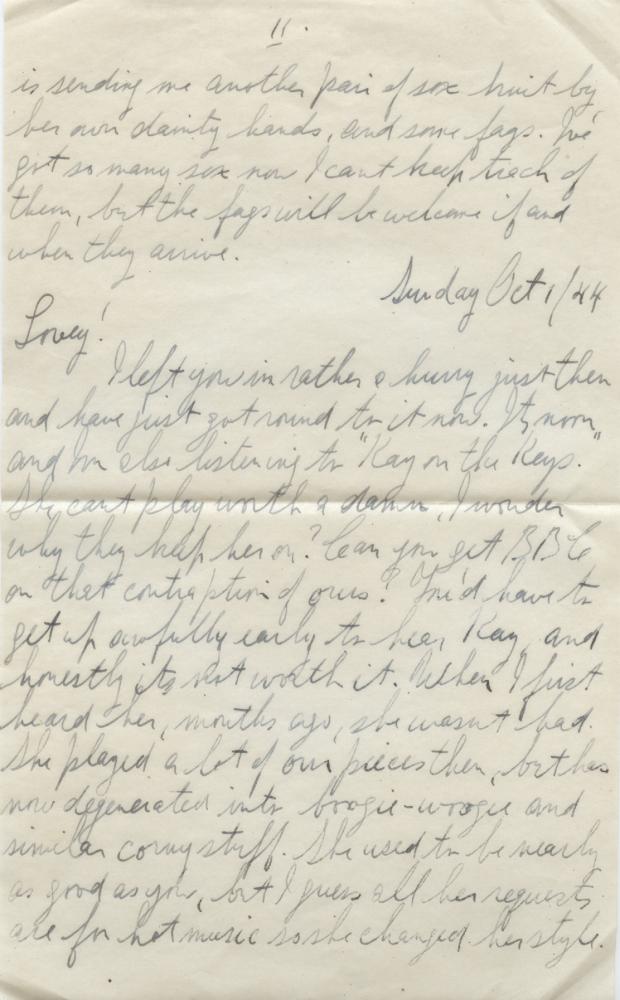 11.
is sending me another pair of sox knit by
her own dainty hands, and some fags. I've
got so many sox now I cant keep track of
them, but the fags will be welcome if and
when they arrive.
Sunday Oct 1/44
Lovey!
I left you in rather a hurry just then
and have just got round to it now. Its noon,
and Im else listening to "Kay on the Keys."
She cant play worth a damn, I wonder
why they keep her on? Can you get BBC
on that contraption of ours? You'd have to
get up awfully early to hear Kay, and
honestly its not worth it. When I first
heard her, months ago, she wasn't bad.
She played a lot of our pieces then, but has
now degenerated into boogie-woogie and
similar corny stuff. She used to be nearly
as good as you, but I guess all her requests
are for hot music so she changed her style.